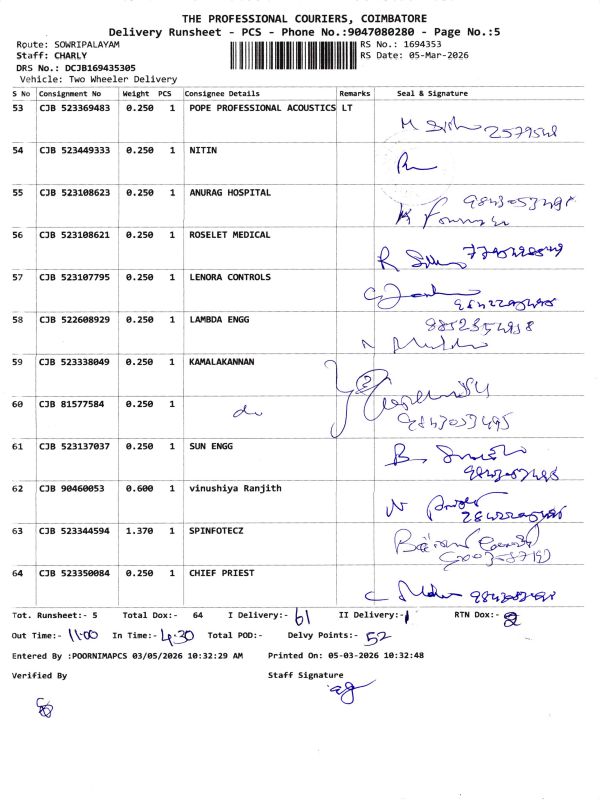 THE PROFESSIONAL COURIERS, COIMBATORE
Delivery Runsheet - PCS - Phone No.:9047080280 - Page No.:5
Route: SOWRIPALAYAM RS No.: 1694353
Staff: CHARLY RS Date: 05-Mar-2026
DRS No.: DCJB169435305
Vehicle: Two Wheeler Delivery
S No Consignment No Weight PCS Consignee Details Remarks Seal & Signature
53 CJB 523369483 0.250 1 POPE PROFESSIONAL ACOUSTICS LT
2579548
54 CJB 523449333 0.250 1 NITIN
55 CJB 523108623 0.250 1 ANURAG HOSPITAL
56 CJB 523108621 0.250 1 ROSELET MEDICAL
57 CJB 523107795 0.250 1 LENORA CONTROLS
58 CJB 522608929 0.250 1 LAMBDA ENGG
59 CJB 523338049 0.250 1 KAMALAKANNAN
60 CJB 81577584 0.250 1 do
9843053495
61 CJB 523137037 0.250 1 SUN ENGG
62 CJB 90460053 0.600 1 vinushiya Ranjith
63 CJB 523344594 1.370 1 SPINFOTECZ
64 CJB 523350084 0.250 1 CHIEF PRIEST
Tot. Runsheet:- 5 Total Dox:- 64 I Delivery:- 61 II Delivery:-1 RTN Dox:- 2
Out Time:- 11:00 In Time:- 4.30 Total POD:- Delvy Points:- 52
Entered By :POORNIMAPCS 03/05/2026 10:32:29 AM Printed On: 05-03-2026 10:32:48
Verified By Staff Signature